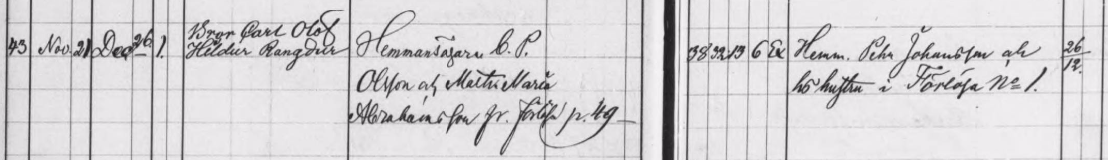 43 Nov. 21 Dec 26. 1. Bror Carl Olof
Hildur Ragndur
Hemmansägaren C. P.
Olsson och Mathi Maria
Abrahamsson fr. Förlösa p. 49
38 32 13 6 Ex Hemm. Pehr Johansson och
hs hustru i Förlösa No 1.
26/12.